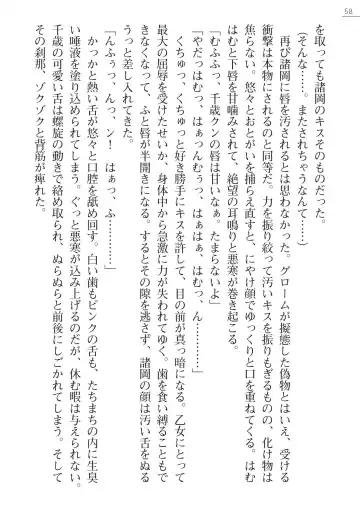 58
を取っても諸岡のキスそのものだった。
(そんな……。またされちゃうなんて……)
　再び諸岡に唇を汚されるとは思わなかった。グロームが擬態した偽物とはいえ、受ける
衝撃は本物にされるのと同等だ。力を振り絞って汚いキスを振りもぎるものの、化け物は
焦らない。悠々とおとがいを捕らえ直すと、にやけ顔でゆっくりと口を重ねてくる。はむ
はむと下唇を甘噛みされて、絶望の耳鳴りと悪寒が巻き起こる。
「むふふっ、千歳クンの唇は甘いなぁ。たまらないよ」
「やだっはむっ、はぁっんむうっ、はぁはぁ、はむっ、ん…………」
　くちゅっ、くちゅっと好き勝手にキスを許して、目の前が真っ暗になる。乙女にとって
最大の屈辱を受けたせいか、身体中から急激に力が失われてゆく。歯を食い縛ることもで
きなくなって、ふと唇が半開きになる。するとその隙を逃さず、諸岡の顔は汚い舌をぬる
うっと差し入れてきた。
「んふうっ、んっ、ン！　はぁっ、ふ…………」
　かっかと熱い舌が悠々と口腔を舐め回す。白い歯もピンクの舌も、たちまちの内に生臭
い唾液を塗り込められてしまう。ぐっと悪寒が込み上げるのだが、休む暇は与えられない。
千歳の可愛い舌は螺旋の動きで絡め取られ、ぬらぬらと前後にしごかれてゆく。そして
その刹那、ゾクゾクと背筋が痺れた。